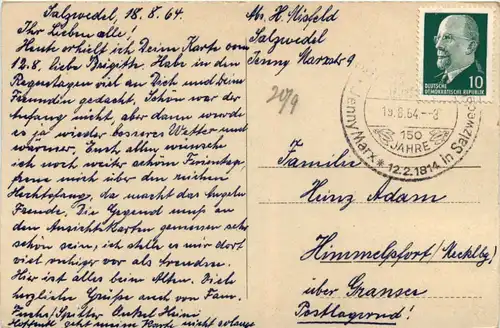 Salzwedel, 18.8.64.
Ihr Lieben alle!
Heute erhielt ich Deine Karte vom
12.8. liebe Brigitte. Habe in den
Regentagen viel an Dich und Deine
Freundin gedacht. Schön war der
Anfang nicht, aber dann wurde
es ja wieder besseres Wetter und
wärmer. Euch allen wünsche
ich noch weiter schöne Ferientage,
freue mich über den reichen
Hechtsfang, da macht das Angeln
Freude. Die Gegend muß an
den Ansichtskarten gemessen sehr
schön sein, ich stelle es mir dort
viel ruhiger vor als
Hier ist alles beim Alten. Viele
herzliche Grüße auch von Fam.
Fuchs/ Onkel Heini
Hoffentl. geht meine Karte nicht solange
Abs. H. Nisfeld
Salzwedel
Jenny Marxstr 9
20/9
DEUTSCHE
DEMOKRATISCHE REPUBLIK
10
19.8.64-8
150
JAHRE
Jenny Marx * 12.2.1814 in Salzwedel
Familie
Heinz Adam
Himmelpfort/Mecklbg/
über Gransee
Postlagernd!